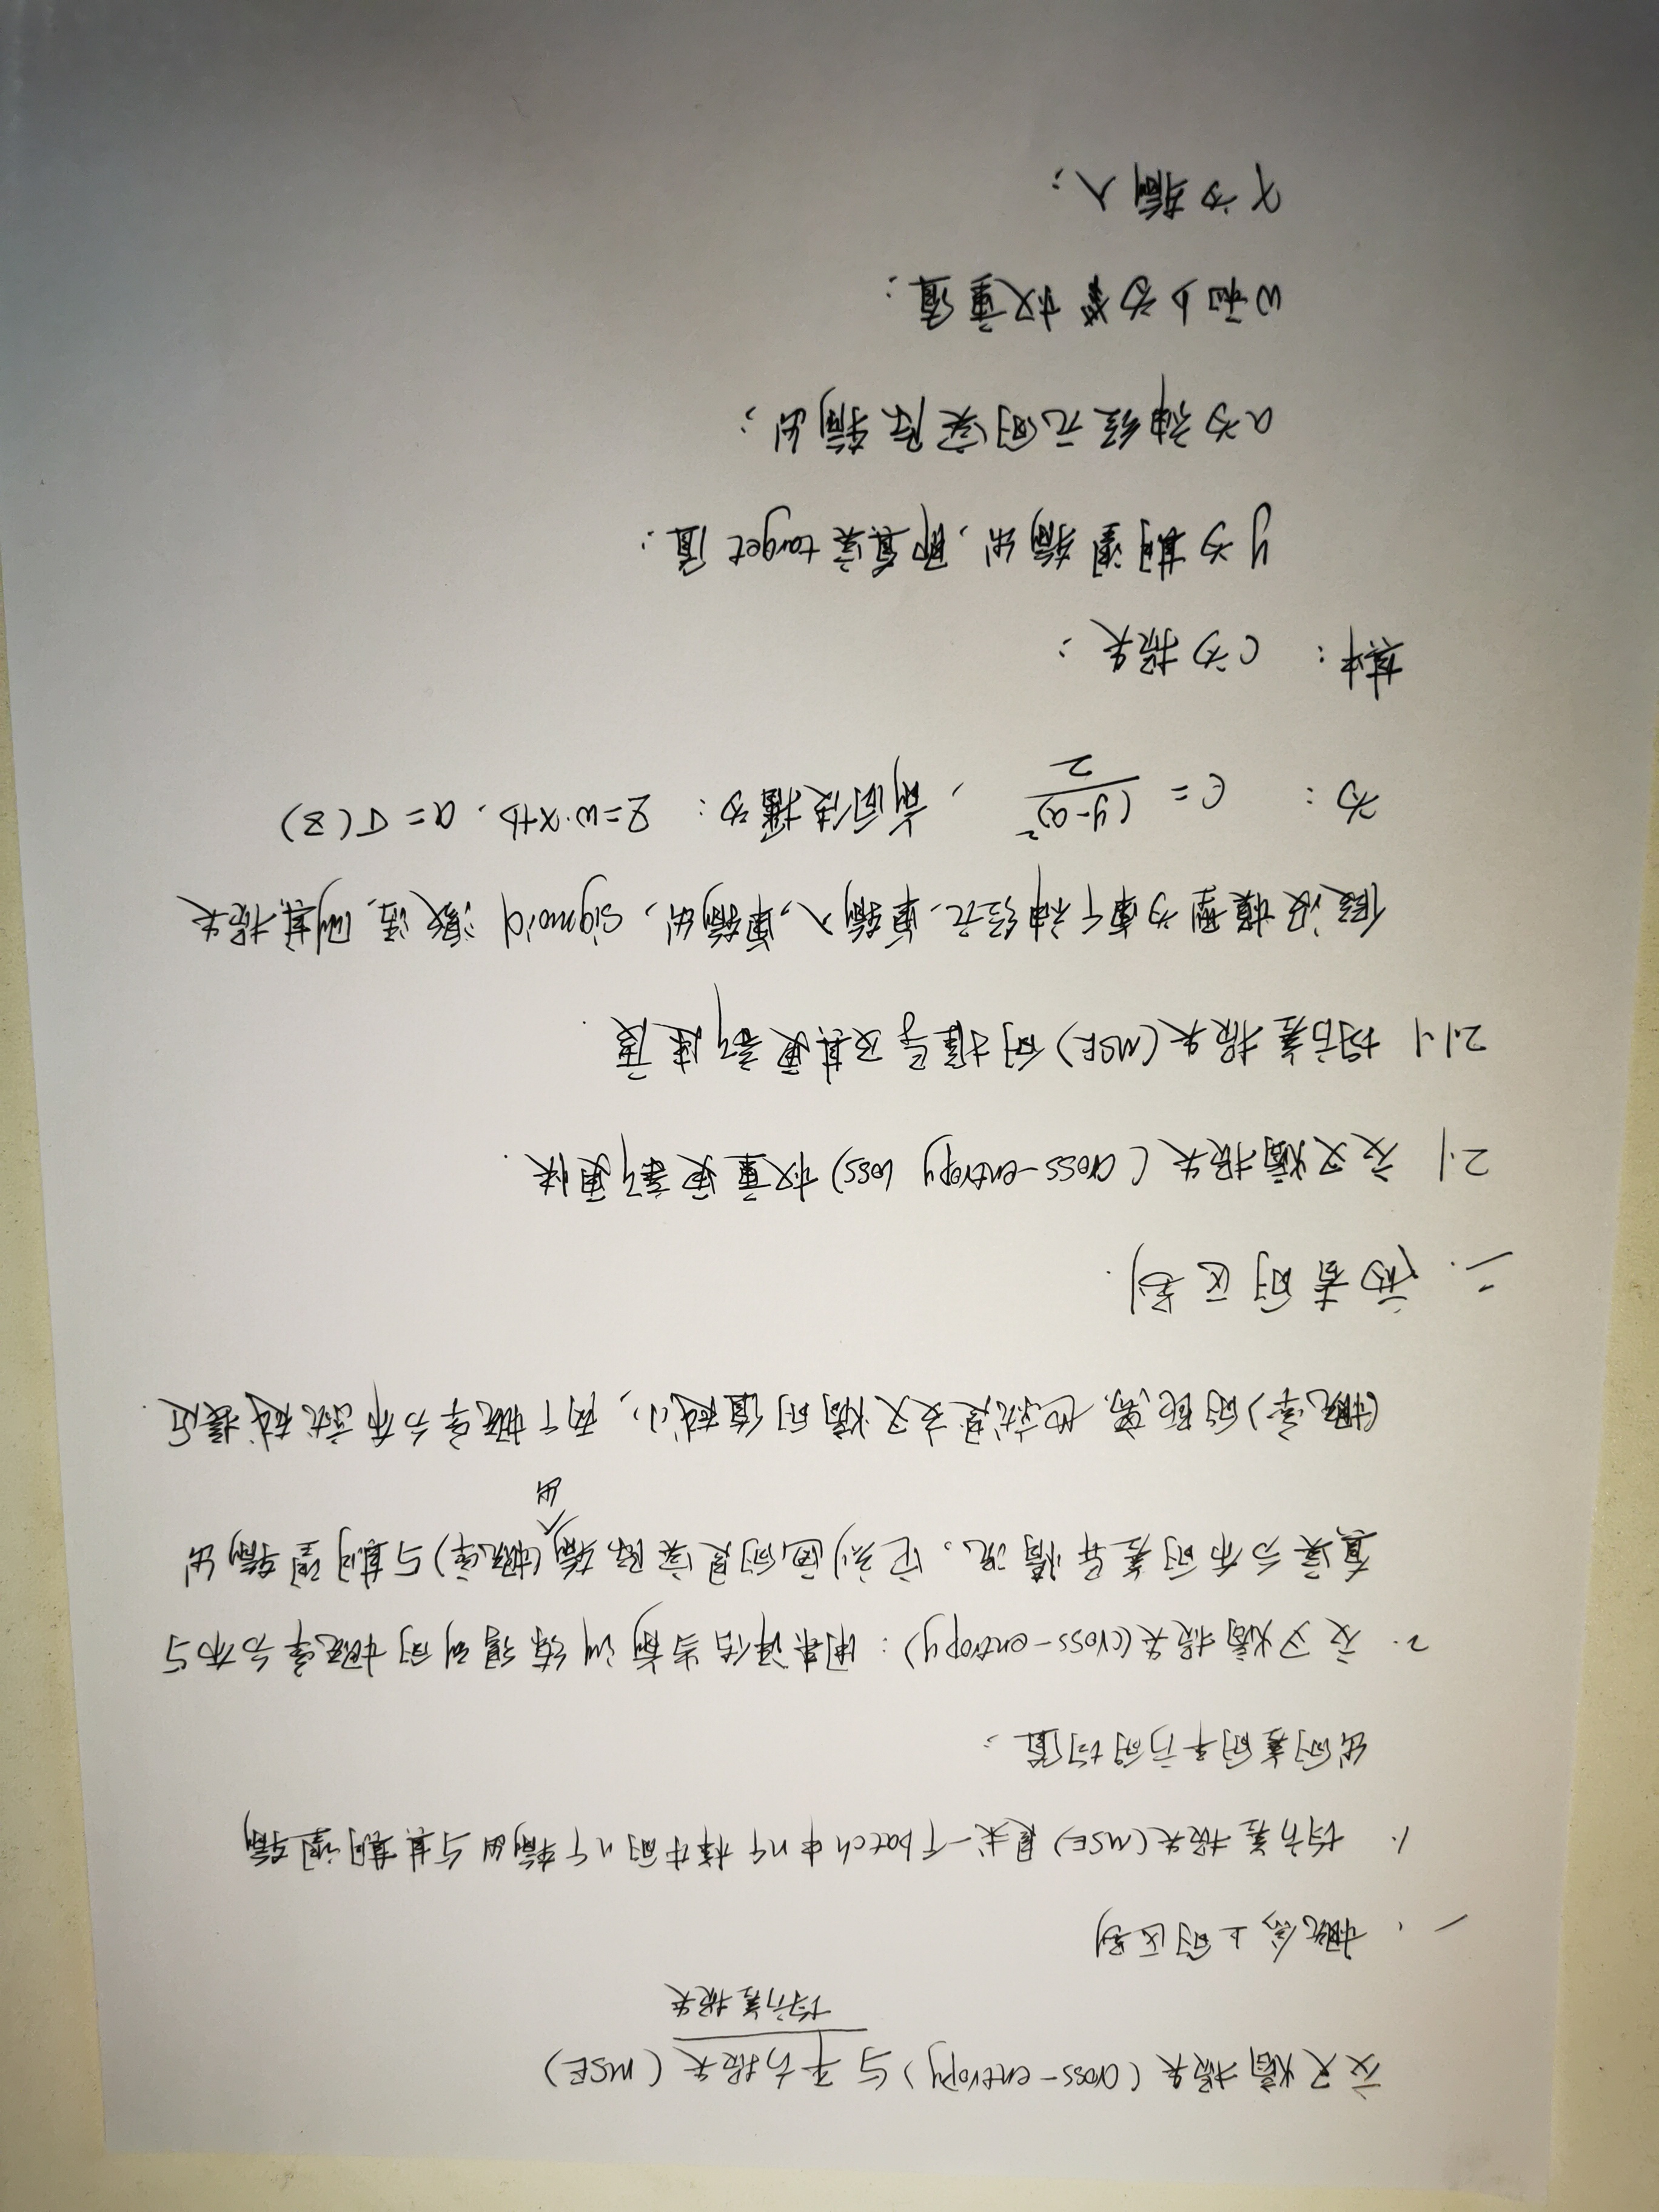 交叉熵损失(cross-entropy)与平方损失(MSE)
均方差损失
一、概念上的区别
1. 均方差损失(MSE)是求一个batch中n个样本的n个输出与其期望输
出的差的平方的均值;
2. 交叉熵损失(cross-entropy):用来评估当前训练得到的概率分布与
真实分布的差异情况。它刻画的是实际输出(概率)与期望输出
(概率)的距离,也就是交叉熵的值越小,两个概率分布就越接近.
二.两者的区别.
2.1 交叉熵损失(cross-entropy loss)权重更新更快.
2.1.1 均方差损失(MSE)的推导及其更新速度.
假设模型为单个神经元,单输入,单输出,sigmoid 激活,则其损失
为: C = (y-a)²/2 ,前向传播为: z=w·x+b, a=σ(z)
其中: C为损失;
y为期望输出,即真实target值;
a为神经元的实际输出;
w和b为权重值;
x为输入;